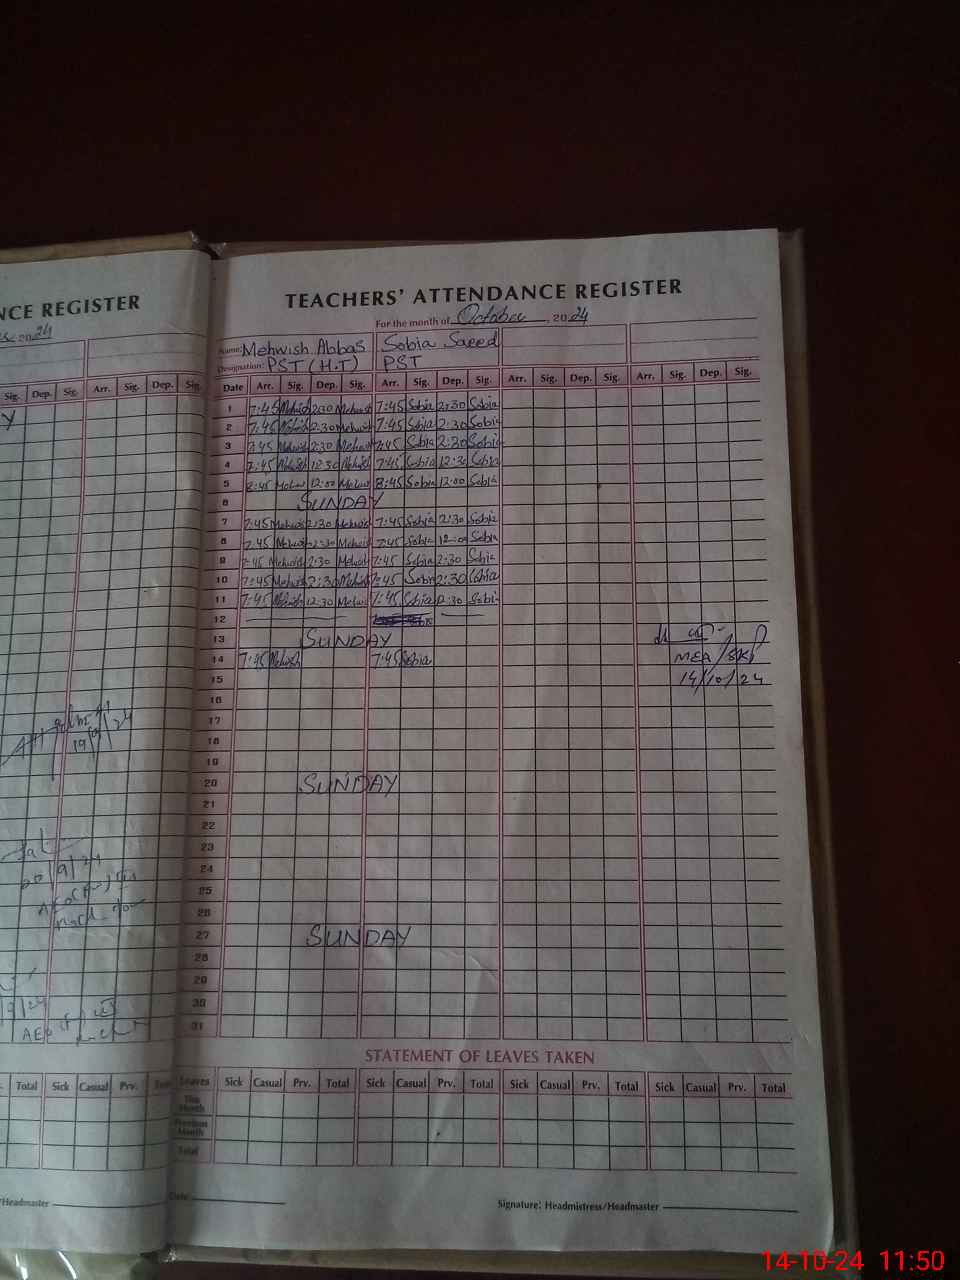 NCE REGISTER
20 24
Sig. Dep. Sig. Arr. Sig. Dep. Sig.
Y
19/9/24
20/9/24
9/24
AEO
Total Sick Casual Prv.
/Headmaster
TEACHERS' ATTENDANCE REGISTER
For the month of October, 2024
Name: Mehwish Abbas Sobia Saeed
Designation: PST (H.T) PST
Date Arr. Sig. Dep. Sig. Arr. Sig. Dep. Sig. Arr. Sig. Dep. Sig. Arr. Sig. Dep. Sig.
1 7:45 Mehwish 2:30 Mehwish 7:45 Sobia 2:30 Sobia
2 7:45 Mehwish 2:30 Mehwish 7:45 Sobia 2:30 Sobia
3 7:45 Mehwish 2:30 Mehwish 7:45 Sobia 2:30 Sobia
4 7:45 Mehwish 12:30 Mehwish 7:45 Sobia 12:30 Sobia
5 8:45 Mehwi 12:00 Mehwi 8:45 Sobia 12:00 Sobia
6 SUNDAY
7 7:45 Mehwish 2:30 Mehwish 7:45 Sobia 2:30 Sobia
8 7:45 Mehwish 2:30 Mehwish 7:45 Sobia 12:00 Sobia
9 7:45 Mehwish 2:30 Mehwish 7:45 Sobia 2:30 Sobia
10 7:45 Mehwish 2:30 Mehwish 7:45 Sobia 2:30 Sobia
11 7:45 Mehwish 12:30 Mehwi 7:45 Sobia 12:30 Sobia
12 Sobia
13 SUNDAY
14 7:45 Mehwish 7:45 Sobia MEA/SKP
15 14/10/24
16
17
18
19
20 SUNDAY
21
22
23
24
25
26
27 SUNDAY
28
29
30
31
STATEMENT OF LEAVES TAKEN
Leaves Sick Casual Prv. Total Sick Casual Prv. Total Sick Casual Prv. Total Sick Casual Prv. Total
This Month
Previous Month
Total
Date Signature: Headmistress/Headmaster
14-10-24 11:50